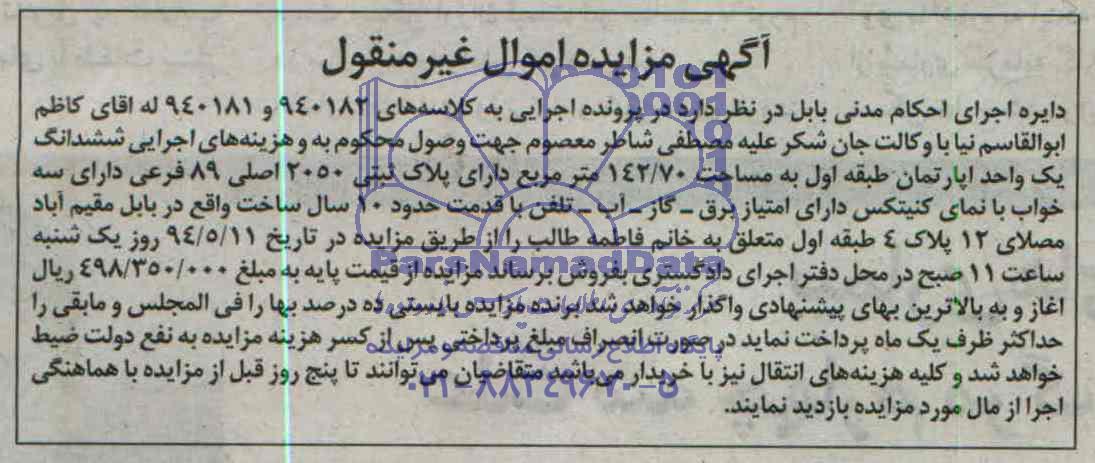 آگهی مزایده اموال غیر منقول
دایره اجرای احکام مدنی بابل در نظر دارد در پرونده اجرایی به کلاسه‌های ۹٤۰۱۸۲ و ۹٤۰۱۸۱ له اقای کاظم
ابوالقاسم نیا با وکالت جان شکر علیه مصطفی شاطر معصوم جهت وصول محکوم به و هزینه‌های اجرایی ششدانگ
یک واحد اپارتمان طبقه اول به مساحت ۱٤۲/۷۰ متر مربع دارای پلاک ثبتی ۲۰۵۰ اصلی ۸۹ فرعی دارای سه
خواب با نمای کنیتکس دارای امتیاز برق ـ گاز ـ آب ـ تلفن با قدمت حدود ۱۰ سال ساخت واقع در بابل مقیم آباد
مصلای ۱۲ پلاک ٤ طبقه اول متعلق به خانم فاطمه طالب را از طریق مزایده در تاریخ ۹٤/۵/۱۱ روز یک شنبه
ساعت ۱۱ صبح در محل دفتر اجرای دادگستری بفروش برساند مزایده از قیمت پایه به مبلغ ٤۹۸/۳۵۰/۰۰۰ ریال
اغاز و به بالاترین بهای پیشنهادی واگذار خواهد شد برنده مزایده بایستی ده درصد بها را فی المجلس و مابقی را
حداکثر ظرف یک ماه پرداخت نماید در صورت انصراف مبلغ پرداختی پس از کسر هزینه مزایده به نفع دولت ضبط
خواهد شد و کلیه هزینه‌های انتقال نیز با خریدار می‌باشد متقاضیان می‌توانند تا پنج روز قبل از مزایده با هماهنگی
اجرا از مال مورد مزایده بازدید نمایند.
ParsNamadData
پایگاه اطلاع رسانی مناقصه و مزایده
۰۲۱-۸۸۳٤۹۶۷۰-۵